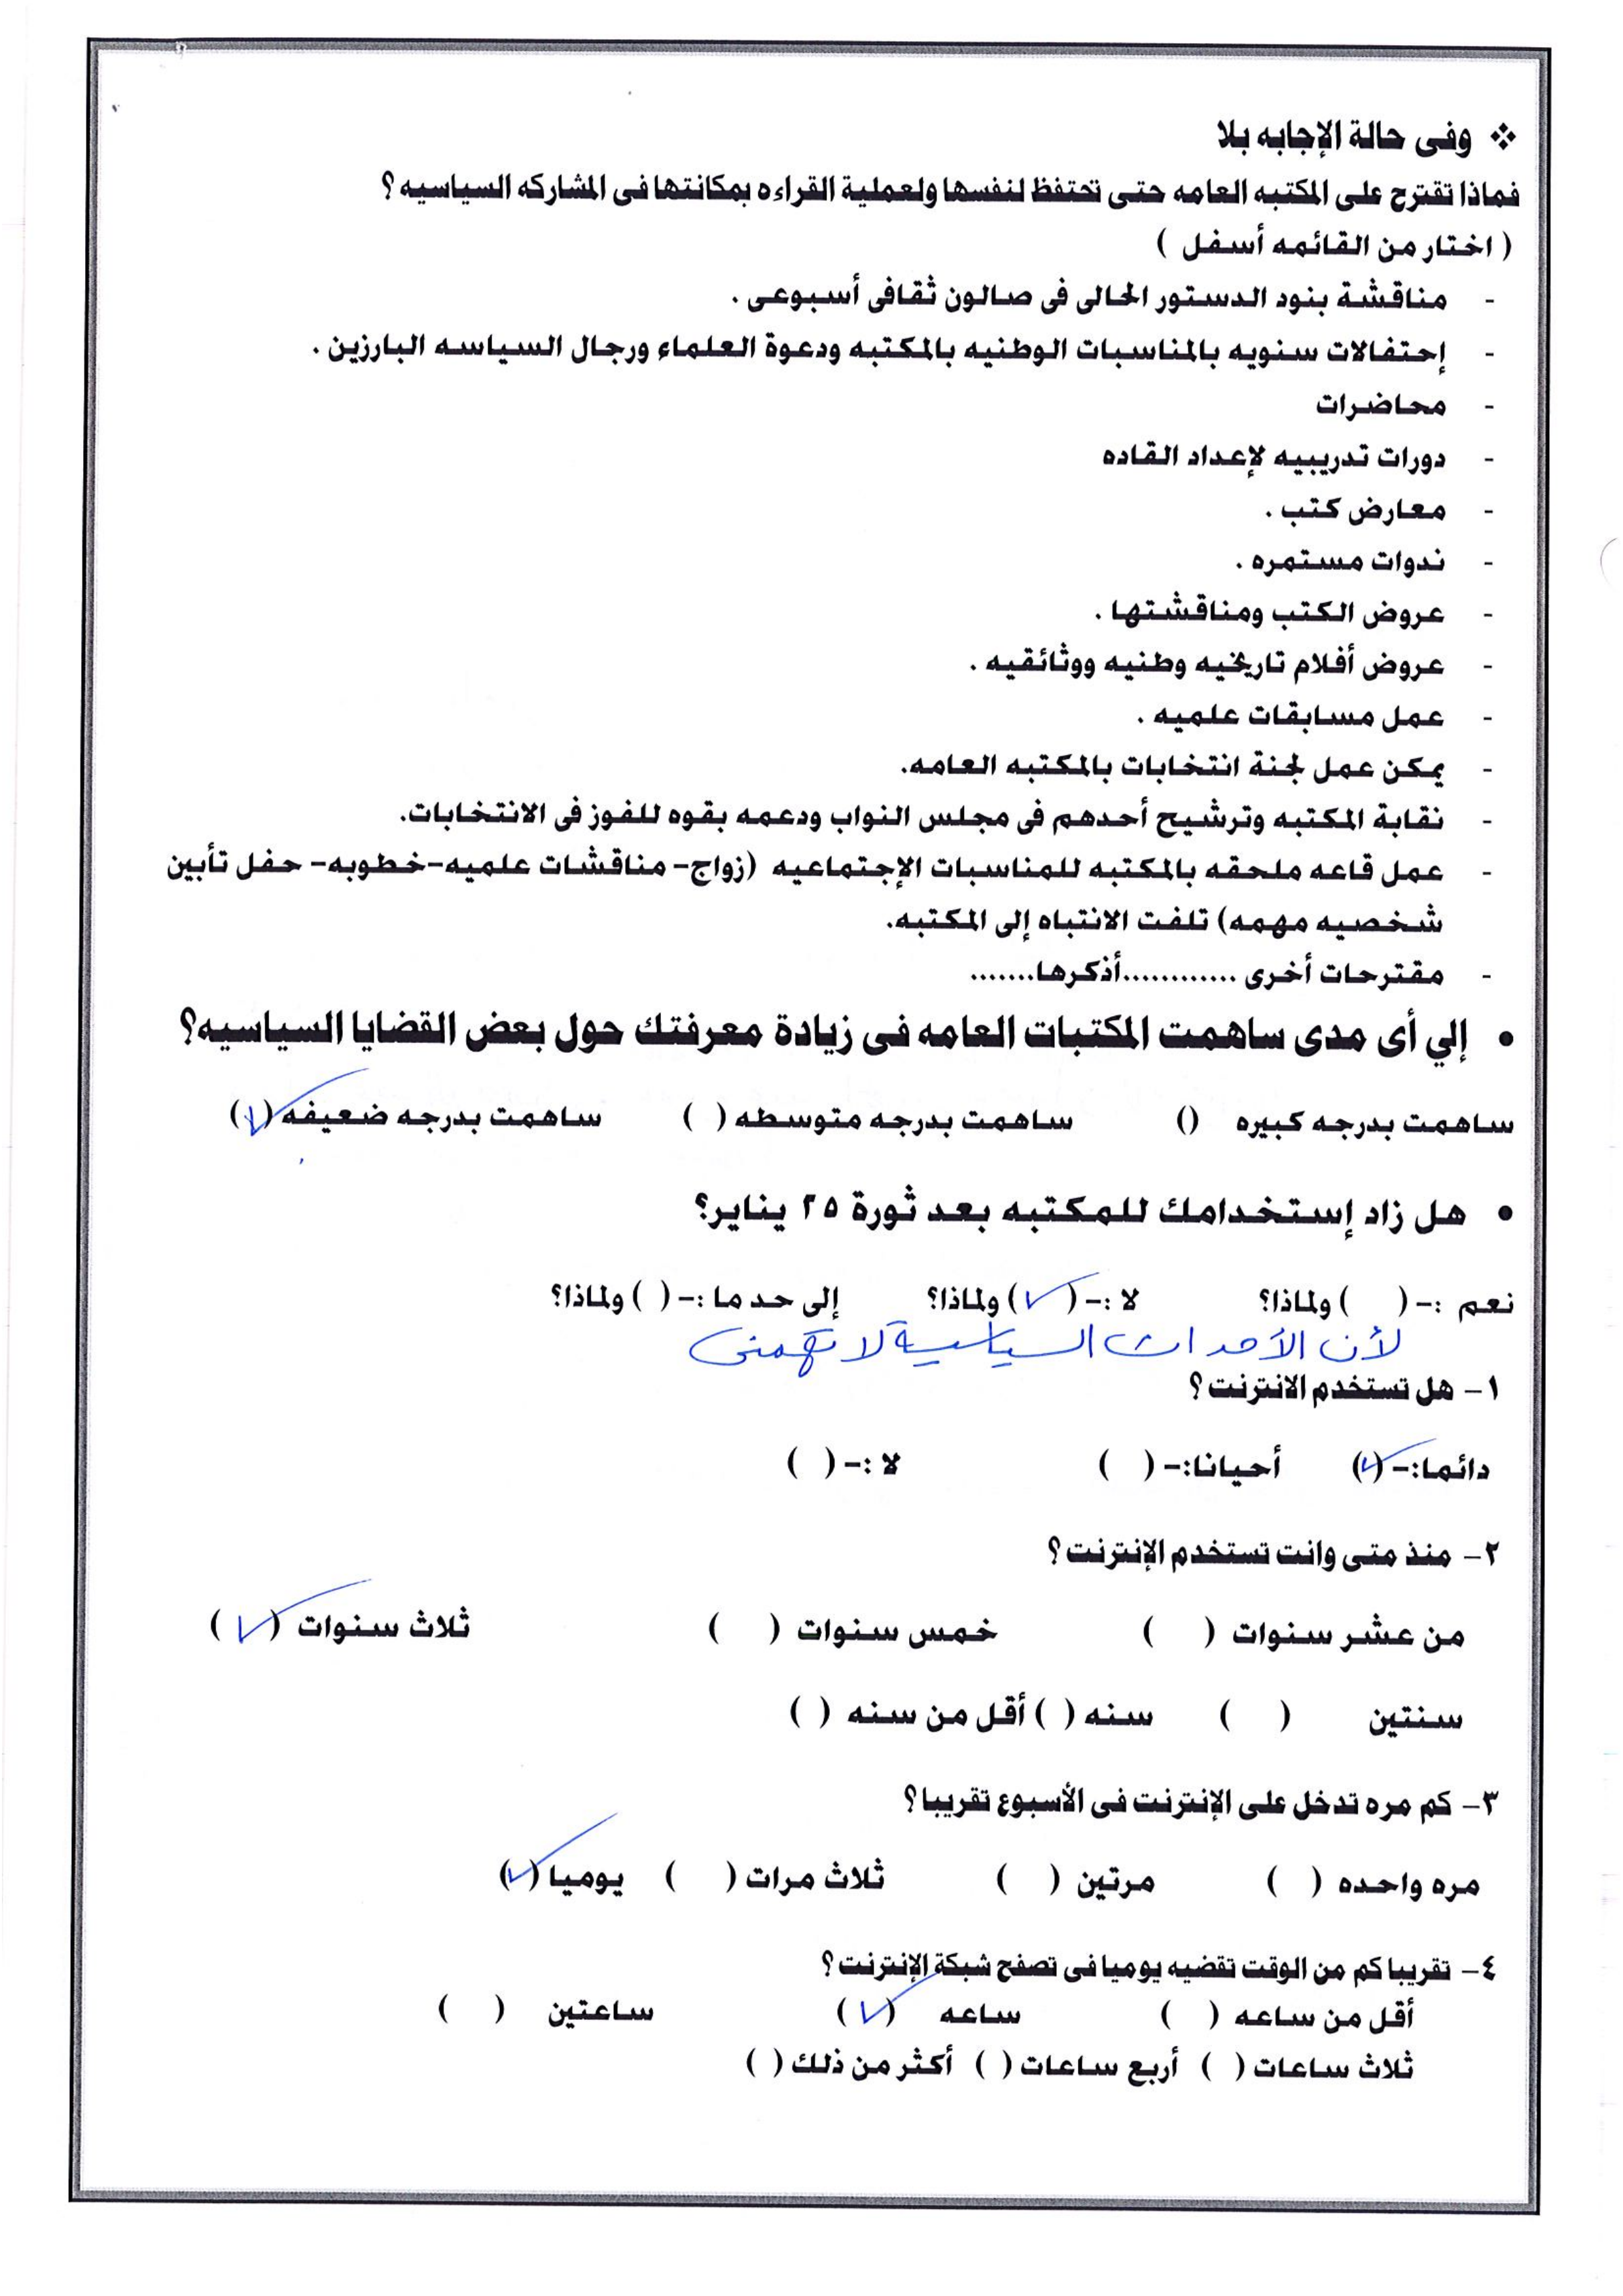 ❖ وفى حالة الإجابه بلا
فماذا تقترح على المكتبه العامه حتى تحتفظ لنفسها ولعملية القراءه بمكانتها فى المشاركه السياسيه ؟
( اختار من القائمه أسفل )
- مناقشة بنود الدستور الحالى فى صالون ثقافى أسبوعى .
- إحتفالات سنويه بالمناسبات الوطنيه بالمكتبه ودعوة العلماء ورجال السياسه البارزين .
- محاضرات
- دورات تدريبيه لإعداد القاده
- معارض كتب .
- ندوات مستمره .
- عروض الكتب ومناقشتها .
- عروض أفلام تاريخيه وطنيه ووثائقيه .
- عمل مسابقات علميه .
- يمكن عمل لجنة انتخابات بالمكتبه العامه.
- نقابة المكتبه وترشيح أحدهم فى مجلس النواب ودعمه بقوه للفوز فى الانتخابات.
- عمل قاعه ملحقه بالمكتبه للمناسبات الإجتماعيه (زواج- مناقشات علميه-خطوبه- حفل تأبين
شخصيه مهمه) تلفت الانتباه إلى المكتبه.
- مقترحات أخرى ............أذكرها.......
• إلي أى مدى ساهمت المكتبات العامه فى زيادة معرفتك حول بعض القضايا السياسيه؟
ساهمت بدرجه كبيره () ساهمت بدرجه متوسطه ( ) ساهمت بدرجه ضعيفه (✓)
• هل زاد إستخدامك للمكتبه بعد ثورة ٢٥ يناير؟
نعم :- ( ) ولماذا؟ لا :- (✓) ولماذا؟ إلى حد ما :- ( ) ولماذا؟
لأن الأحداث السياسية لا تهمنى
١- هل تستخدم الانترنت ؟
دائما:- (✓) أحيانا:- ( ) لا :- ( )
٢- منذ متى وانت تستخدم الإنترنت ؟
من عشر سنوات ( ) خمس سنوات ( ) ثلاث سنوات (✓)
سنتين ( ) سنه ( ) أقل من سنه ( )
٣- كم مره تدخل على الإنترنت فى الأسبوع تقريبا؟
مره واحده ( ) مرتين ( ) ثلاث مرات ( ) يوميا (✓)
٤- تقريبا كم من الوقت تقضيه يوميا فى تصفح شبكة الإنترنت ؟
أقل من ساعه ( ) ساعه (✓) ساعتين ( )
ثلاث ساعات ( ) أربع ساعات ( ) أكثر من ذلك ( )